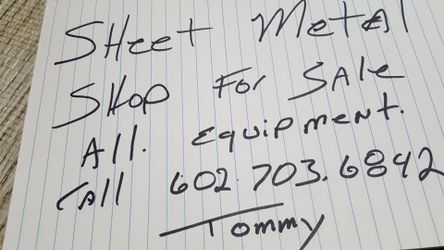 SHeet Metal
SHop For SAle
All. equipment.
CAll 602.703.6842
Tommy